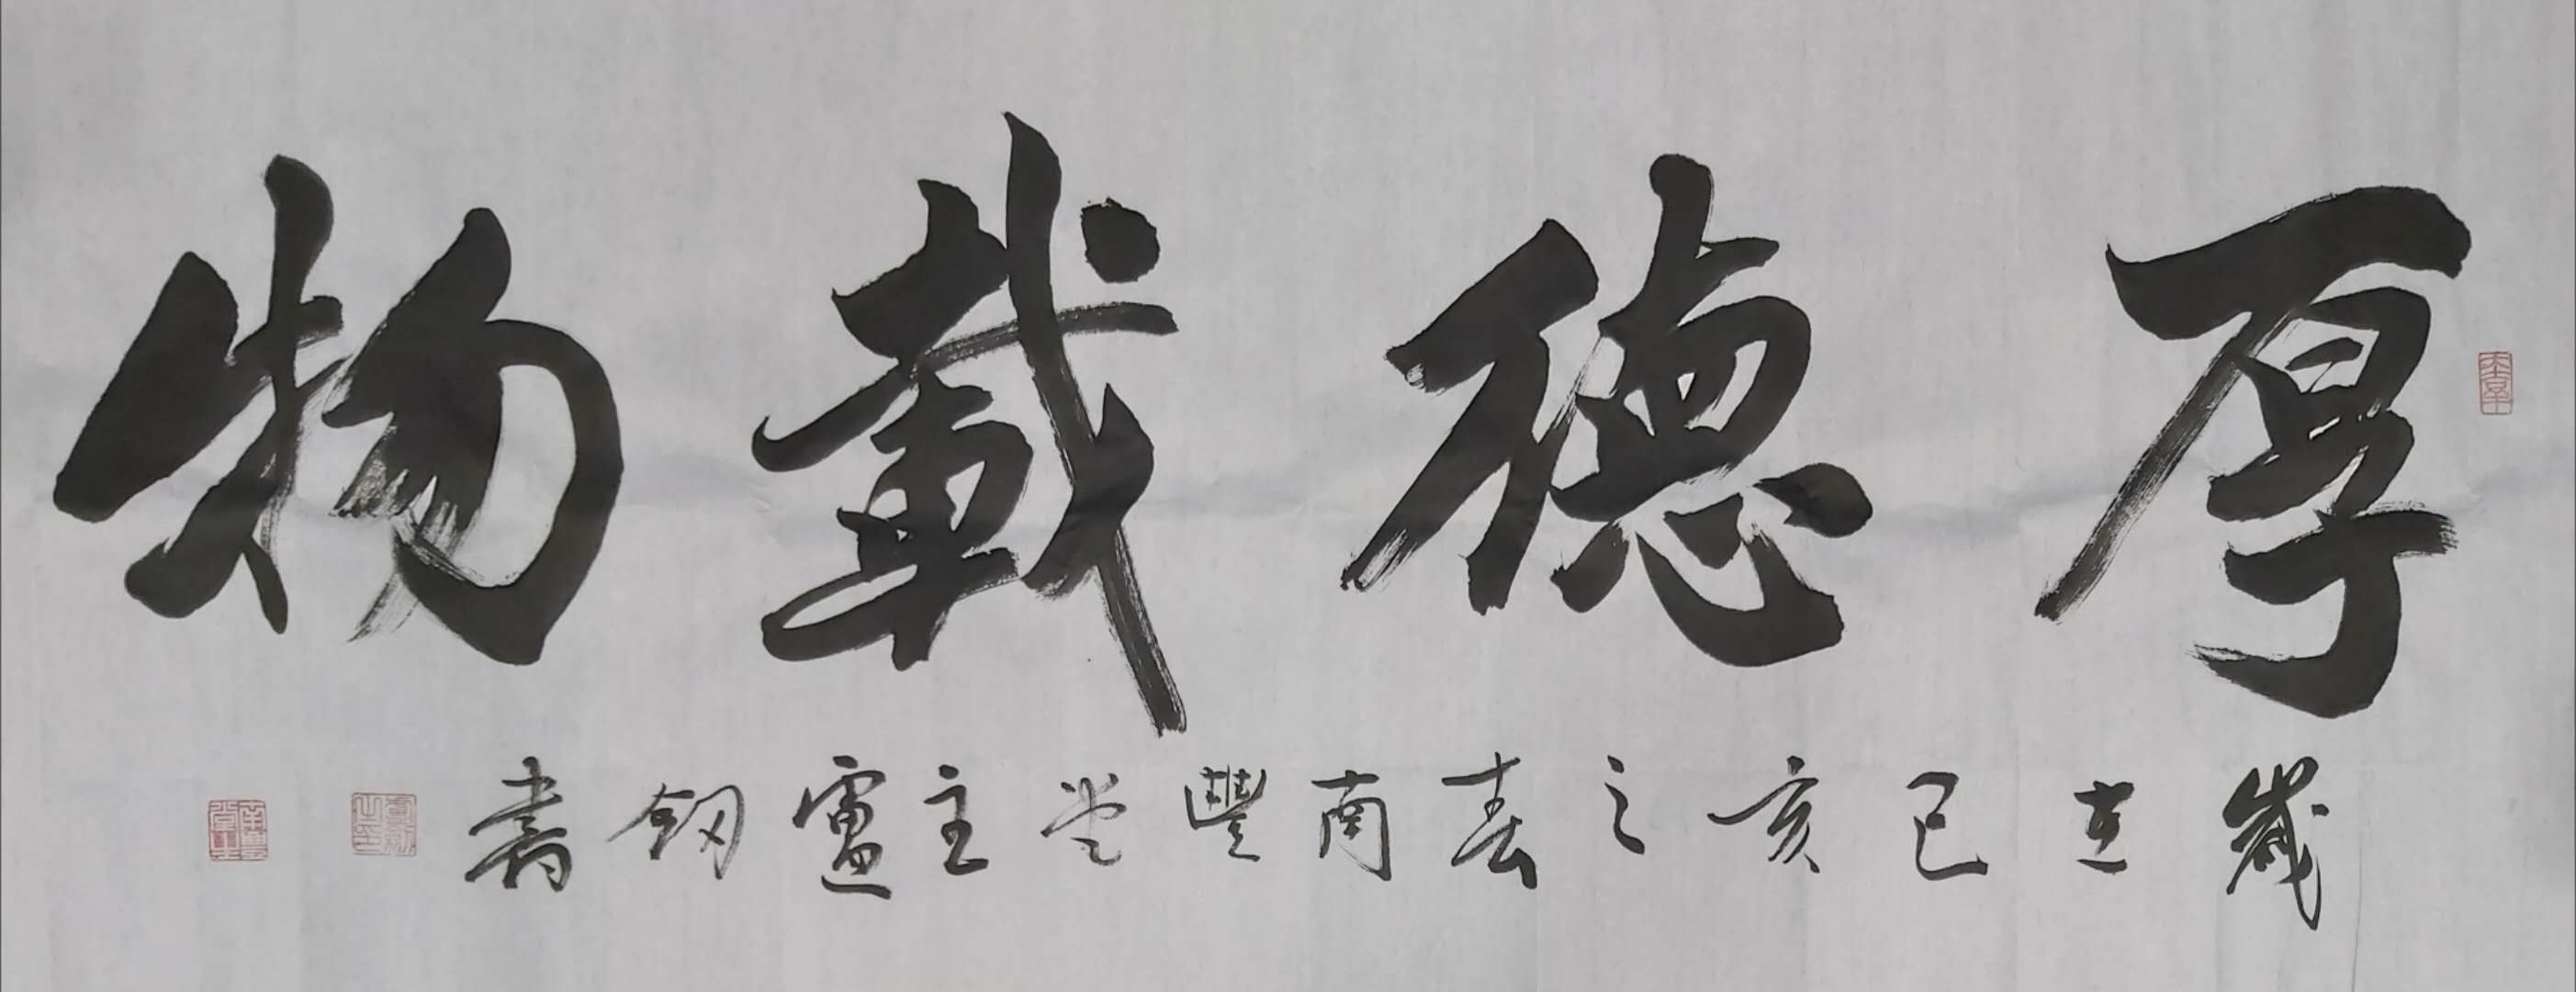 厚德載物
歲在己亥之春南豐堂主盧釰書